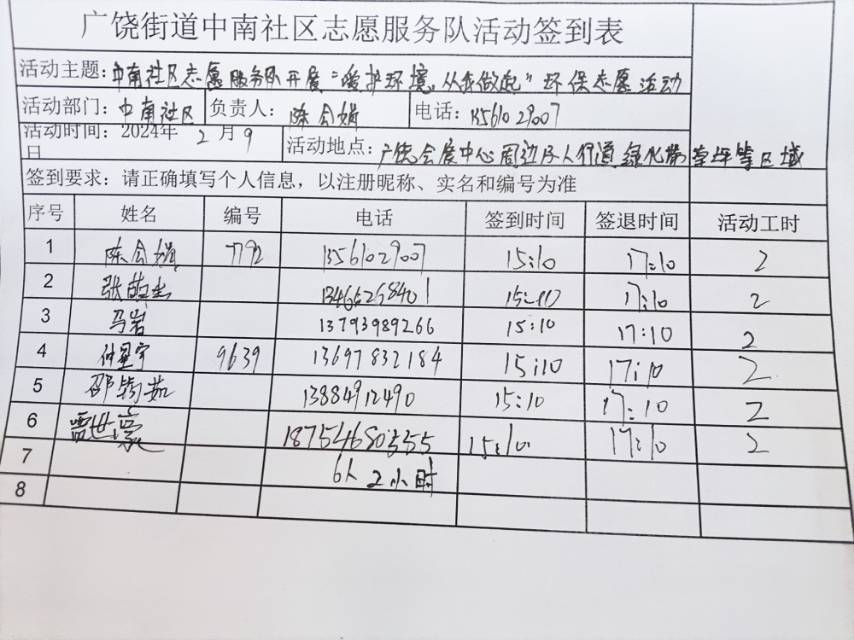 广饶街道中南社区志愿服务队活动签到表
活动主题：中南社区志愿服务队开展“爱护环境，从我做起”环保志愿活动
活动部门：中南社区 负责人：陈会娟 电话：13561029007
活动时间：2024年 2 月 9 日 活动地点：广饶会展中心周边及人行道绿化带草坪等区域
签到要求：请正确填写个人信息，以注册昵称、实名和编号为准
序号 姓名 编号 电话 签到时间 签退时间 活动工时
1 陈会娟 7792 13561029007 15:10 17:10 2
2 15:10 17:10 2
3 马岩 13793989266 15:10 17:10 2
4 9639 13697832184 15:10 17:10 2
5 13884912490 15:10 17:10 2
6 贾世豪 18754680555 15:10 17:10 2
7 6人 2小时
8